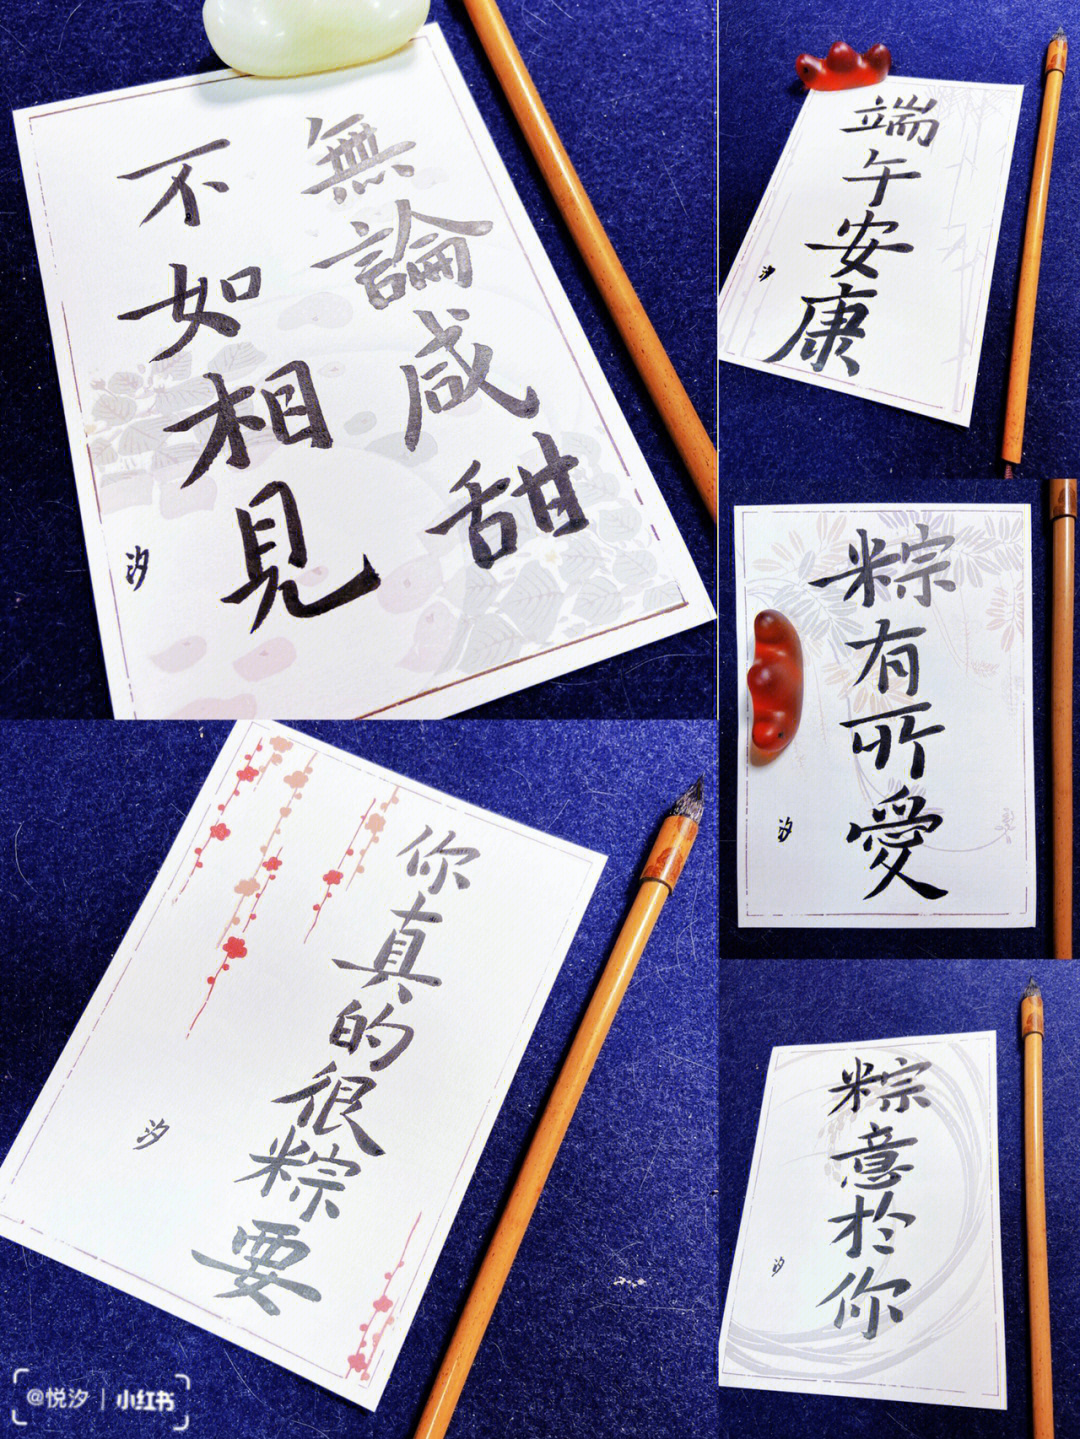 無論咸甜
不如相見
汐
端午安康
汐
粽有所愛
汐
你真的很粽要
汐
粽意於你
汐
@悦汐 | 小红书